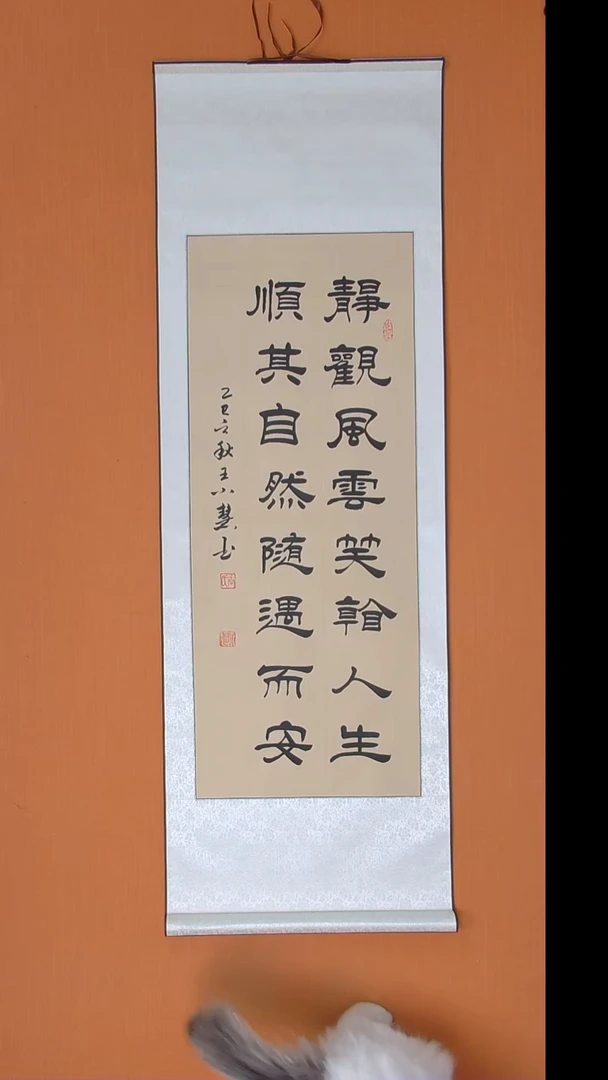 靜觀風雲笑看人生
順其自然随遇而安
乙巳立秋王小慧书